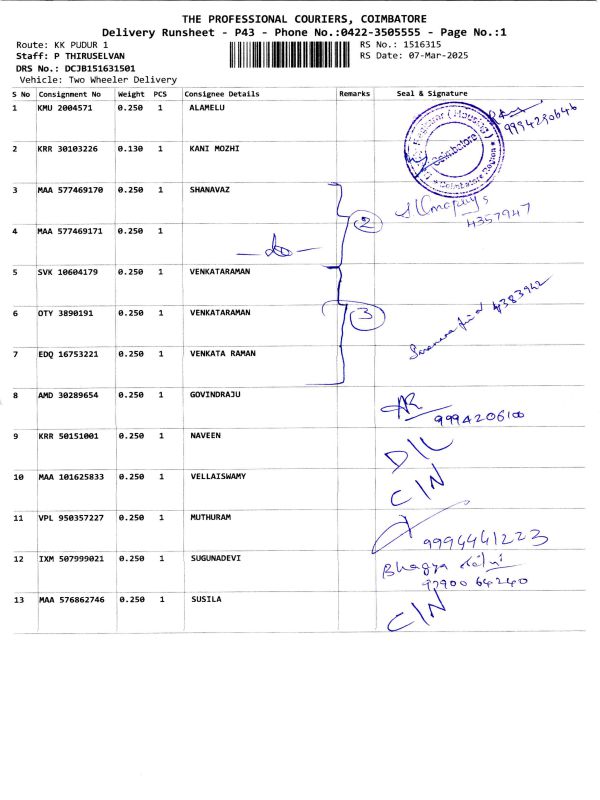 THE PROFESSIONAL COURIERS, COIMBATORE
Delivery Runsheet - P43 - Phone No.:0422-3505555 - Page No.:1
Route: KK PUDUR 1 RS No.: 1516315
Staff: P THIRUSELVAN RS Date: 07-Mar-2025
DRS No.: DCJB151631501
Vehicle: Two Wheeler Delivery
S No Consignment No Weight PCS Consignee Details Remarks Seal & Signature
1 KMU 2004571 0.250 1 ALAMELU
9994290646
2 KRR 30103226 0.130 1 KANI MOZHI
(Housing) Coimbatore
Coimbatore Region
3 MAA 577469170 0.250 1 SHANAVAZ
2
4357947
4 MAA 577469171 0.250 1
-do-
5 SVK 10604179 0.250 1 VENKATARAMAN
6 OTY 3890191 0.250 1 VENKATARAMAN
3
7 EDQ 16753221 0.250 1 VENKATA RAMAN
8 AMD 30289654 0.250 1 GOVINDRAJU
9994206100
9 KRR 50151001 0.250 1 NAVEEN
D/L
10 MAA 101625833 0.250 1 VELLAISWAMY
C/N
11 VPL 950357227 0.250 1 MUTHURAM
9994441223
12 IXM 507999021 0.250 1 SUGUNADEVI
Bhagya
97900 64240
13 MAA 576862746 0.250 1 SUSILA
C/N